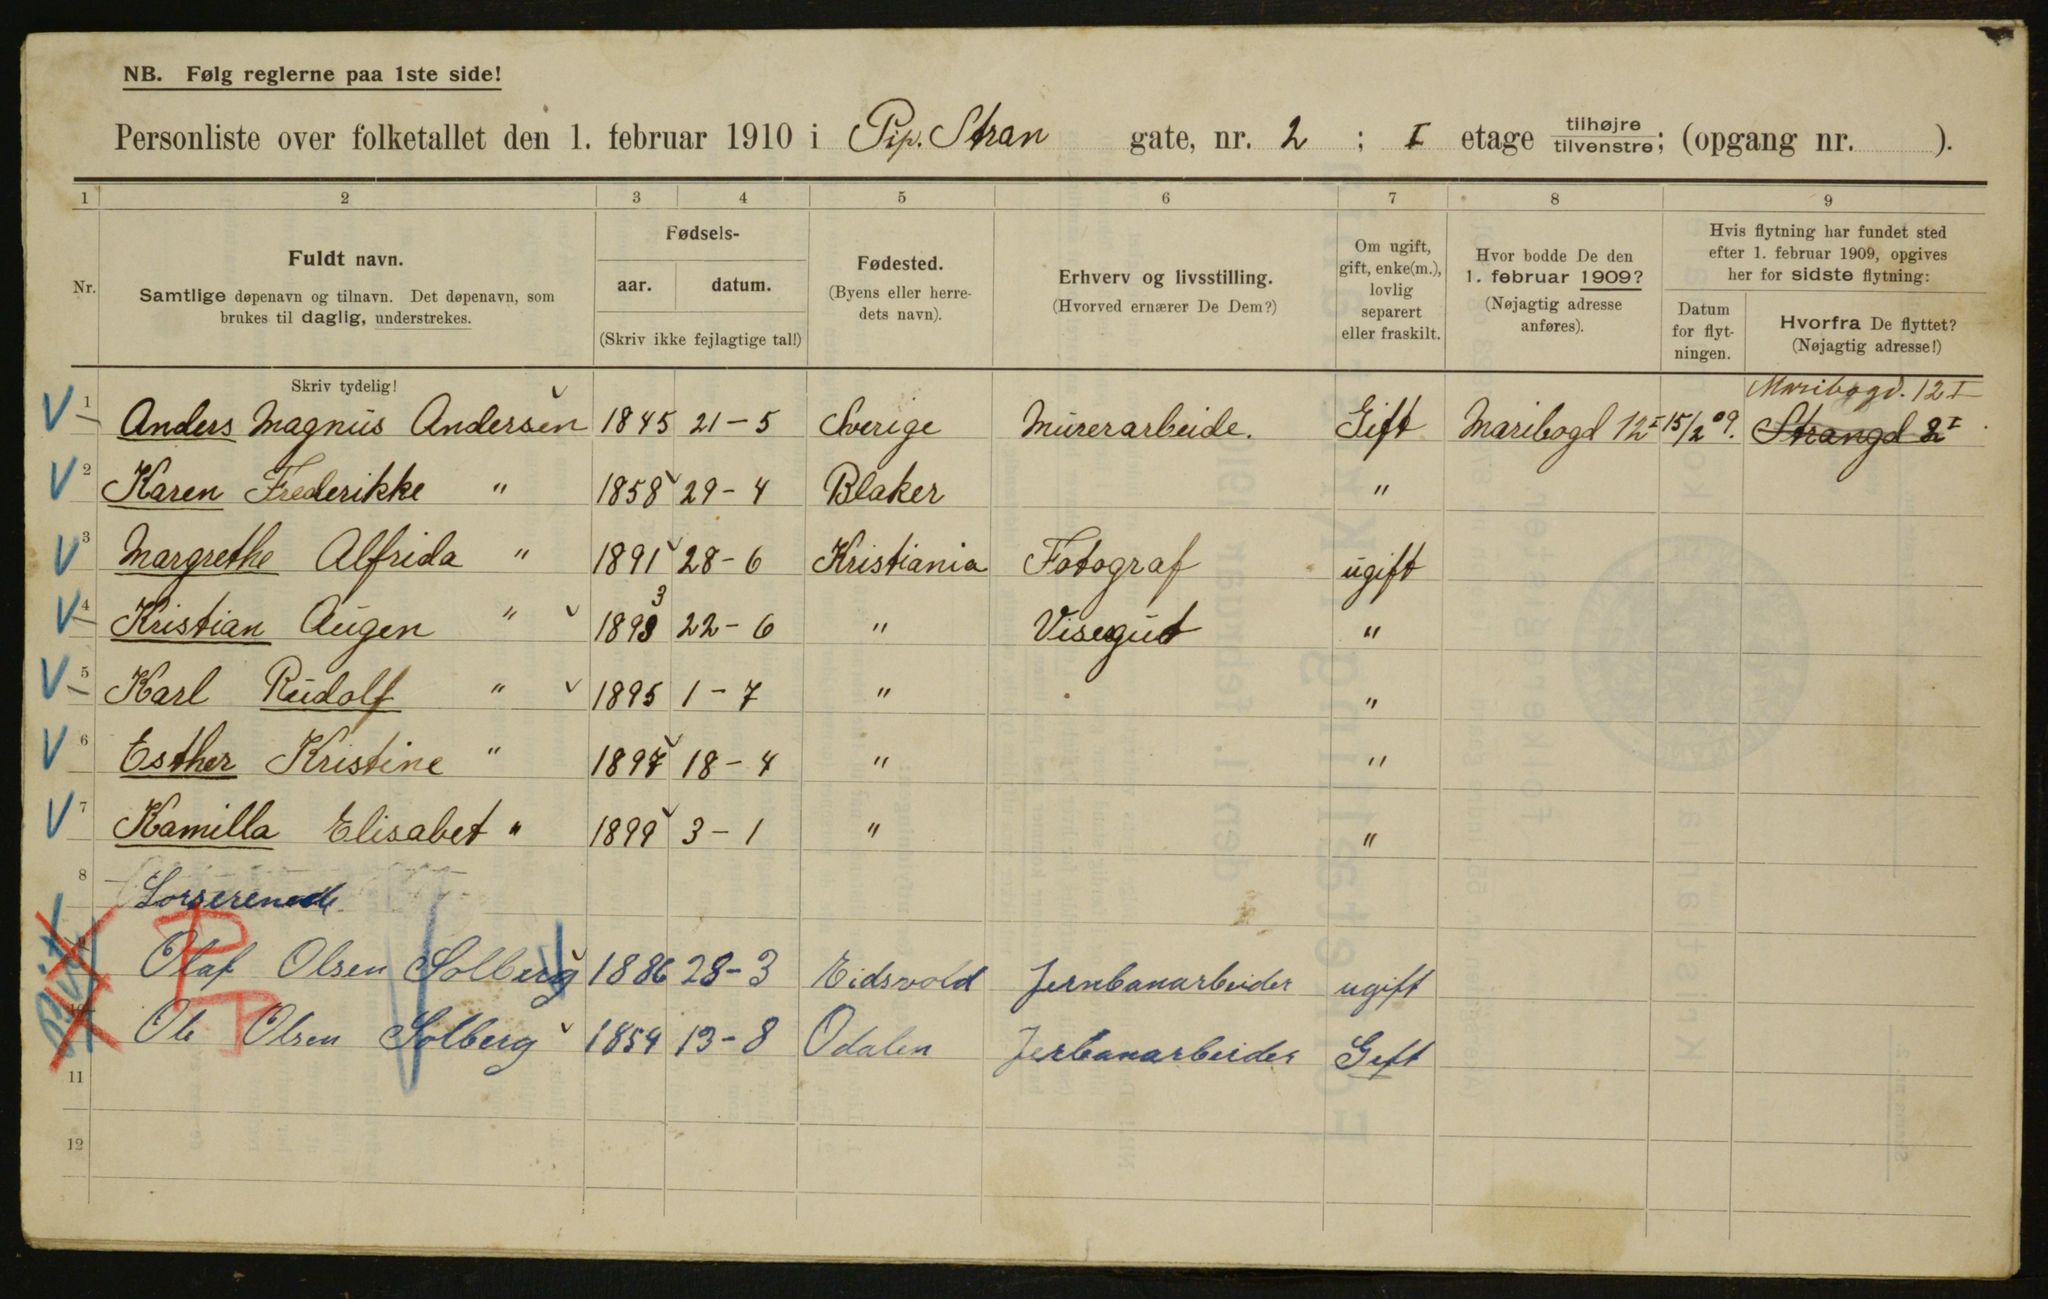 NB. Følg reglerne paa 1ste side!
Personliste over folketallet den 1. februar 1910 i Pip. Stran gate, nr. 2 ; I etage tilhøjre tilvenstre; (opgang nr. ).
1 2 3 4 5 6 7 8 9
Nr.
Fuldt navn.
Samtlige døpenavn og tilnavn. Det døpenavn, som
brukes til daglig, understrekes.
Skriv tydelig!
Fødsels-
aar. datum.
(Skriv ikke fejlagtige tal!)
Fødested.
(Byens eller herre-
dets navn).
Erhverv og livsstilling.
(Hvorved ernærer De Dem?)
Om ugift,
gift, enke(m.),
lovlig
separert
eller fraskilt.
Hvor bodde De den
1. februar 1909?
(Nøjagtig adresse
anføres).
Hvis flytning har fundet sted
efter 1. februar 1909, opgives
her for sidste flytning:
Datum
for flyt-
ningen.
Hvorfra De flyttet?
(Nøjagtig adresse!)
Maribogd. 12 I
1 Anders Magnus Andersen 1845 21-5 Sverige Murerarbeide. Gift Maribogd 12 I 15/2 09. Strangd 2 I
2 Karen Frederikke " 1858 29-4 Blaker "
3 Margrethe Alfrida " 1891 28-6 Kristiania Fotograf ugift
3
4 Kristian Augen " 1893 22-6 " Visergut "
5 Karl Rudolf " 1895 1-7 " "
6 Esther Kristine " 1897 18-4 " "
7 Kamilla Elisabet " 1899 3-1 " "
8 Losserende
9 Olaf Olsen Solberg 1886 28-3 Eidsvold Jernbanarbeider ugift
10 Ole Olsen Solberg 1854 13-8 Odalen Jerbanarbeider Gift
11
12